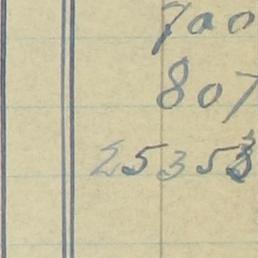 700
807
25353